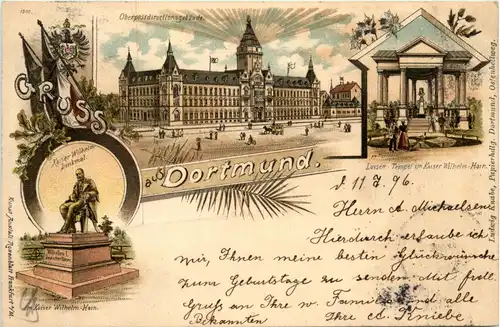 1201.
Oberpostdirectionsgebäude.
GRUSS
aus Dortmund.
Kaiser Wilhelm-
Denkmal.
Im Kaiser Wilhelm-Hain.
Luisen-Tempel im Kaiser Wilhelm-Hain.
Ludwig Knabe, Papierhdlg. Dortmund, Ostenhellweg.
Kunst-Anstalt Rosenblatt Frankfurt a/M.
d 11.7.96.
Herrn A. Michaelsen
Hierdurch erlaube ich
mir, Ihnen meine besten Glückwünsche
zum Geburtstage zu senden. Mit froh
Gruß an Ihre w. Familie und alle
Bekannten Ihre Kniebe